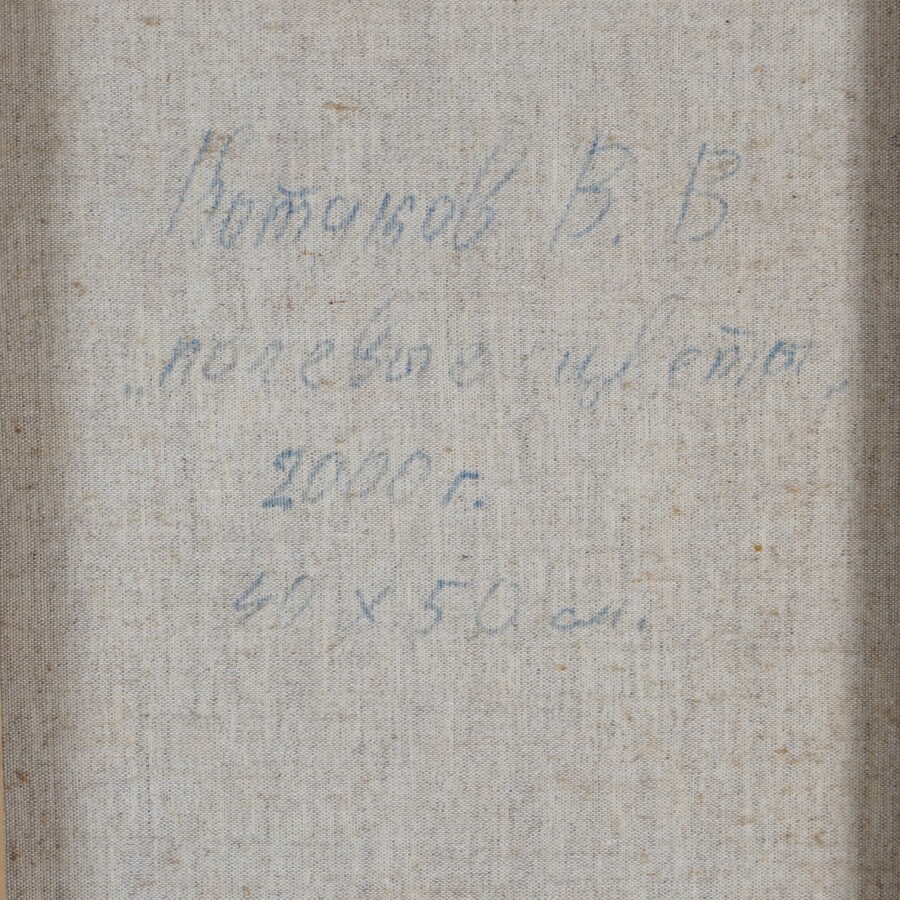 Котаков В. В
„полевые цветы„
2000 г.
40 х 50 см.